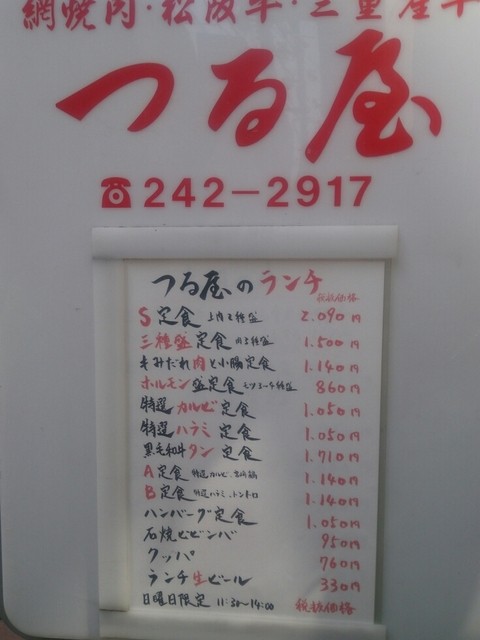 網焼肉・松阪牛・三重産牛
つる屋
☎242-2917
つる屋のランチ
税抜価格
S定食 上肉2種盛 2.090円
三種盛定食 肉3種盛 1.500円
もみだれ肉と小腸定食 1.140円
ホルモン盛定食 860円
特選カルビ定食 1.050円
特選ハラミ定食 1.050円
黒毛和牛タン定食 1.710円
A定食 特選カルビ、 1.140円
B定食 特選ハラミ、トントロ 1.140円
ハンバーグ定食 1.050円
石焼ビビンバ 950円
クッパ 760円
ランチ生ビール 330円
日曜日限定 11:30~14:00 税抜価格